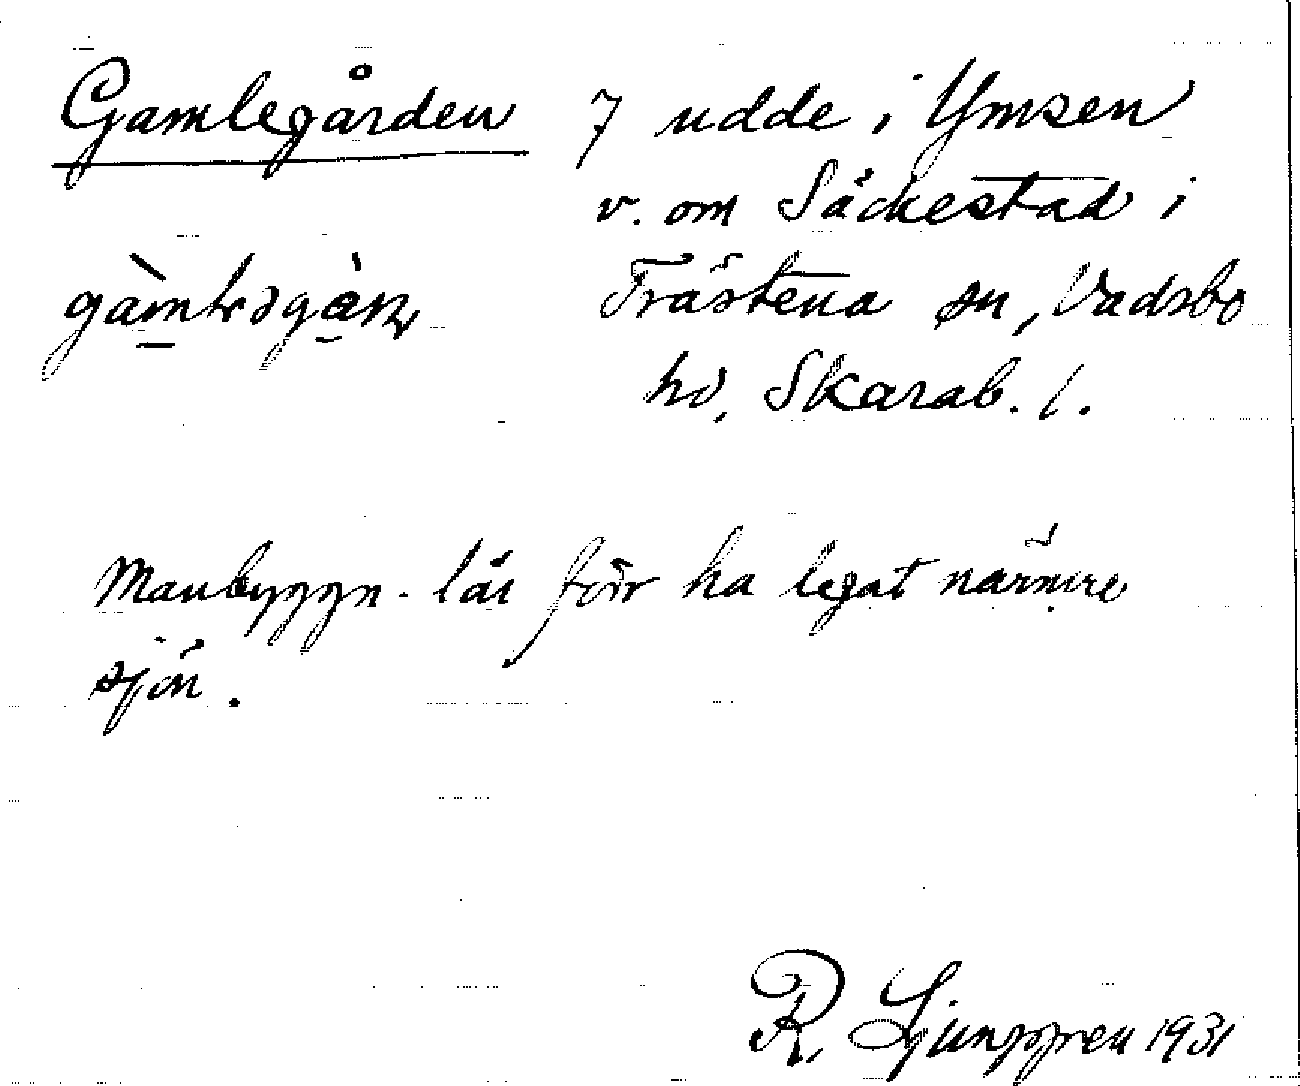 Gamlegården 7 udde i Ymsen
v. om Säckestad i
Frästena sn, Vadsbo
hd, Skarab. l.
Manbyggn. lär förr ha legat närmre
sjön.
R. Ljunggren 1931